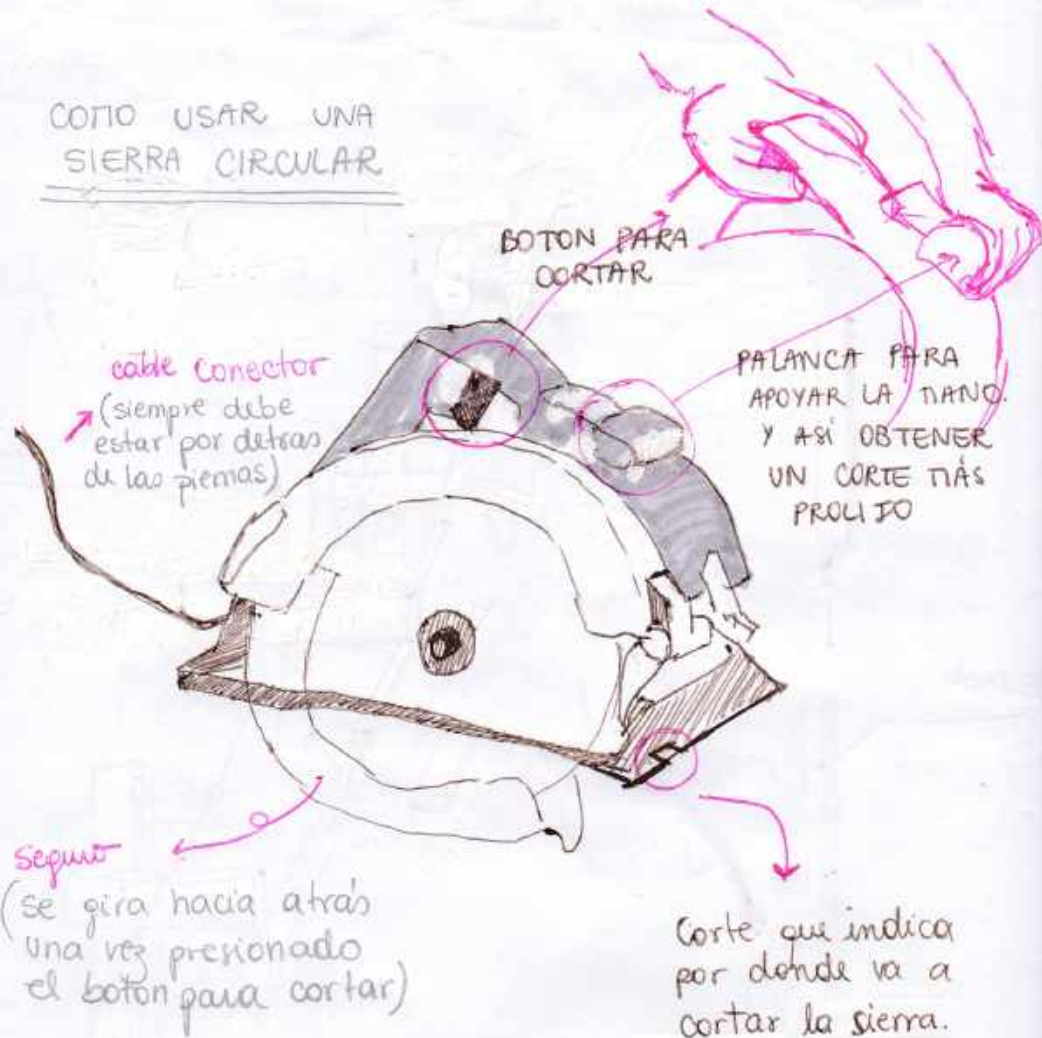 COMO USAR UNA
SIERRA CIRCULAR
BOTON PARA
CORTAR
cable conector
(siempre debe
estar por detras
de las piernas)
PALANCA PARA
APOYAR LA MANO.
Y ASÍ OBTENER
UN CORTE MÁS
PROLIJO
seguro
(se gira hacia atrás
una vez presionado
el botón para cortar)
Corte que indica
por donde va a
cortar la sierra.